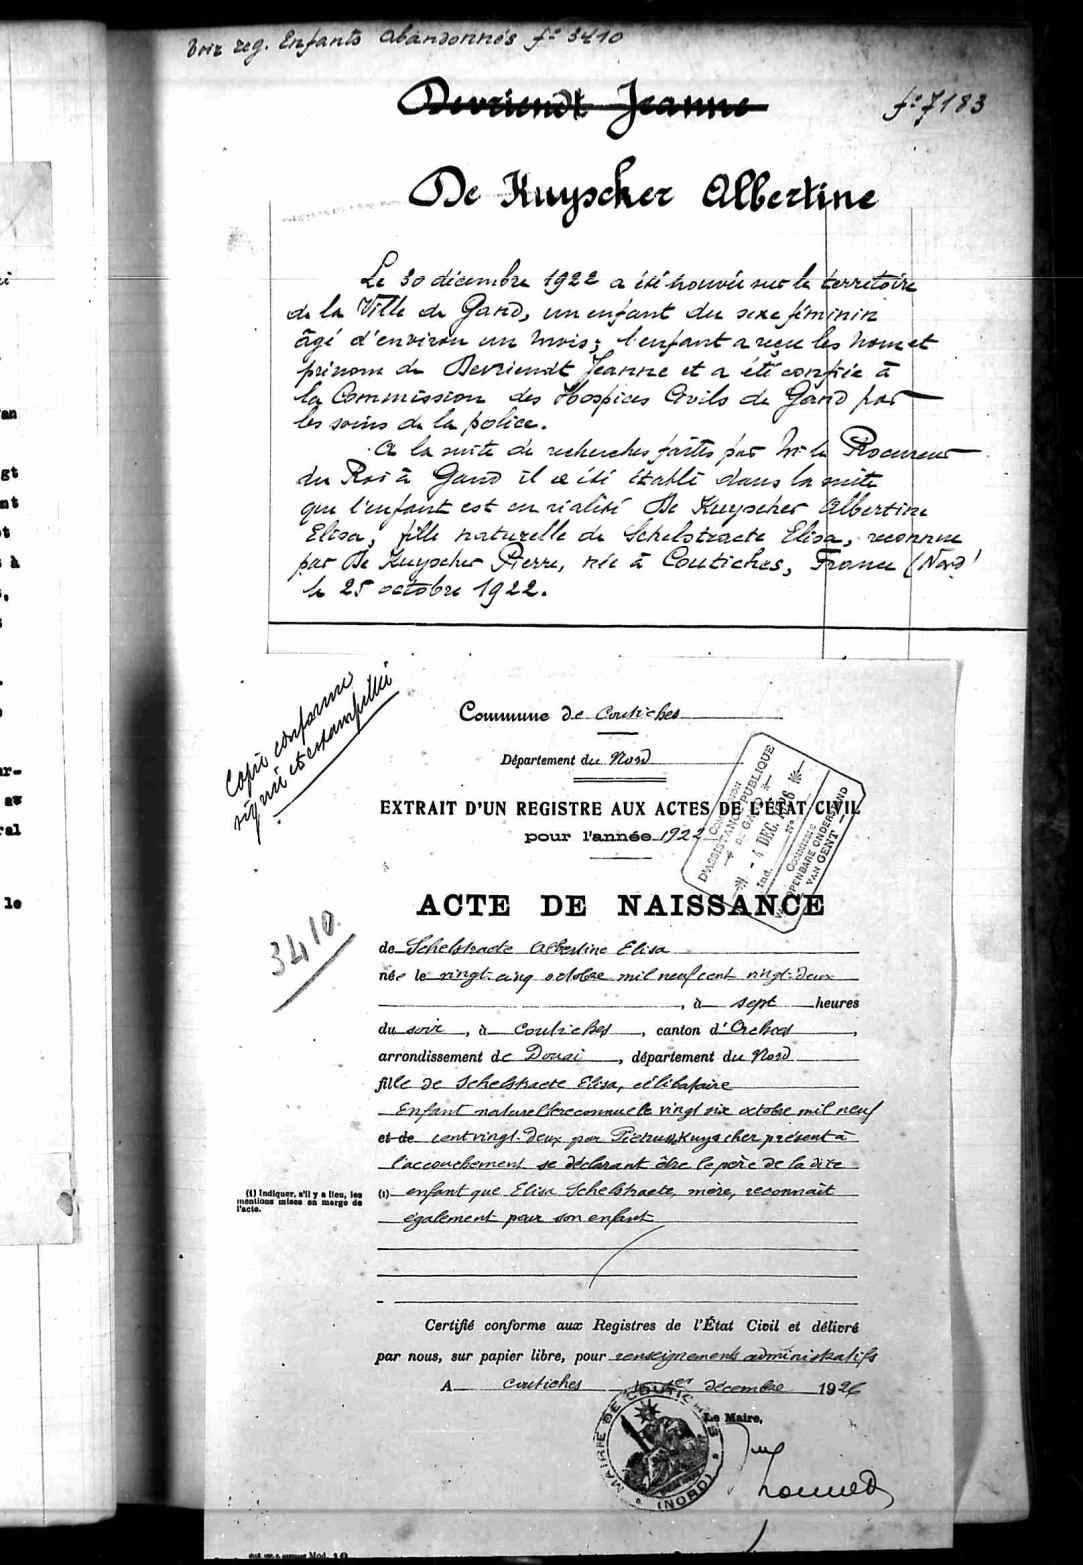 Voir reg. Enfants Abandonnés f° 3410
Devriendt Jeanne
f° 7183
De Kuyscher Albertine
Le 30 décembre 1922 a été trouvée sur le territoire
de la Ville de Gand, un enfant du sexe féminin
âgé d'environ un mois; l'enfant a reçu les nom et
prénom de Devriendt Jeanne et a été confié à
la Commission des Hospices Civils de Gand par
les soins de la police.
A la suite de recherches faites par Mr le Procureur
du Roi à Gand il a été établi dans la suite
que l'enfant est en réalité De Kuyscher Albertine
Elisa, fille naturelle de Schelstraete Elisa, reconnue
par De Kuyscher Pierre, née à Coutiches, France (Nord)
le 25 octobre 1922.
Copie conforme
signée et estampillée
Commune de Coutiches
Département du Nord
EXTRAIT D'UN REGISTRE AUX ACTES DE L'ÉTAT CIVIL
pour l'année 1922
COMMISSION
D'ASSISTANCE PUBLIQUE
DE GAND
- 4 DEC. 1926
Ind. N°
COMMISSIE
VAN OPENBARE ONDERSTAND
VAN GENT
ACTE DE NAISSANCE
3410.
de Schelstraete Albertine Elisa
née le vingt-cinq octobre mil neuf cent vingt-deux
, à sept heures
du soir, à Coutiches, canton d'Orchies,
arrondissement de Douai, département du Nord
fille de Schelstraete Elisa, célibataire
Enfant naturel reconnue le vingt six octobre mil neuf
et de cent vingt-deux par Pietrus Kuyscher présent à
l'accouchement se déclarant être le père de la dite
(1) Indiquer, s'il y a lieu, les
mentions mises en marge de
l'acte.
(1) enfant que Elisa Schelstraete, mère, reconnait
également pour son enfant
Certifié conforme aux Registres de l'État Civil et délivré
par nous, sur papier libre, pour renseignements administratifs
A Coutiches le 1er décembre 1926
Le Maire,
MAIRIE DE COUTICHES
(NORD)